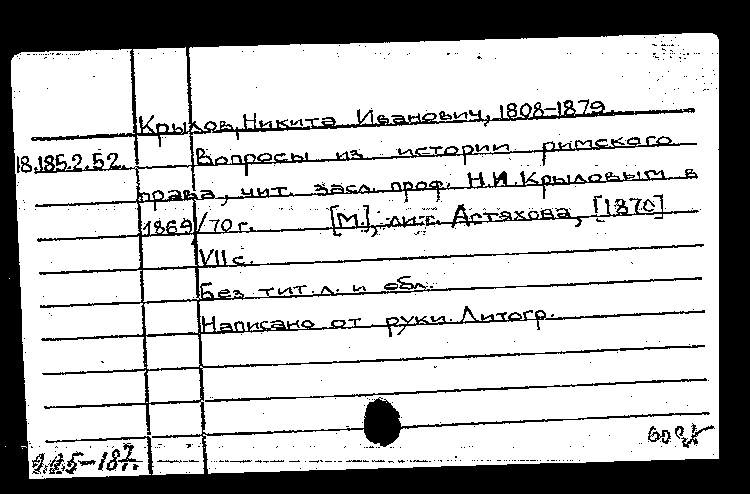 Крылов, Никита Иванович, 1808-1879.
18.185.2.52. Вопросы из истории римского
права, чит. засл. проф. Н.И.Крыловым в
1869/70 г. [М.], лит. Астяхова, [1870]
VII с.
Без тит. л. и обл.
Написано от руки. Литогр.